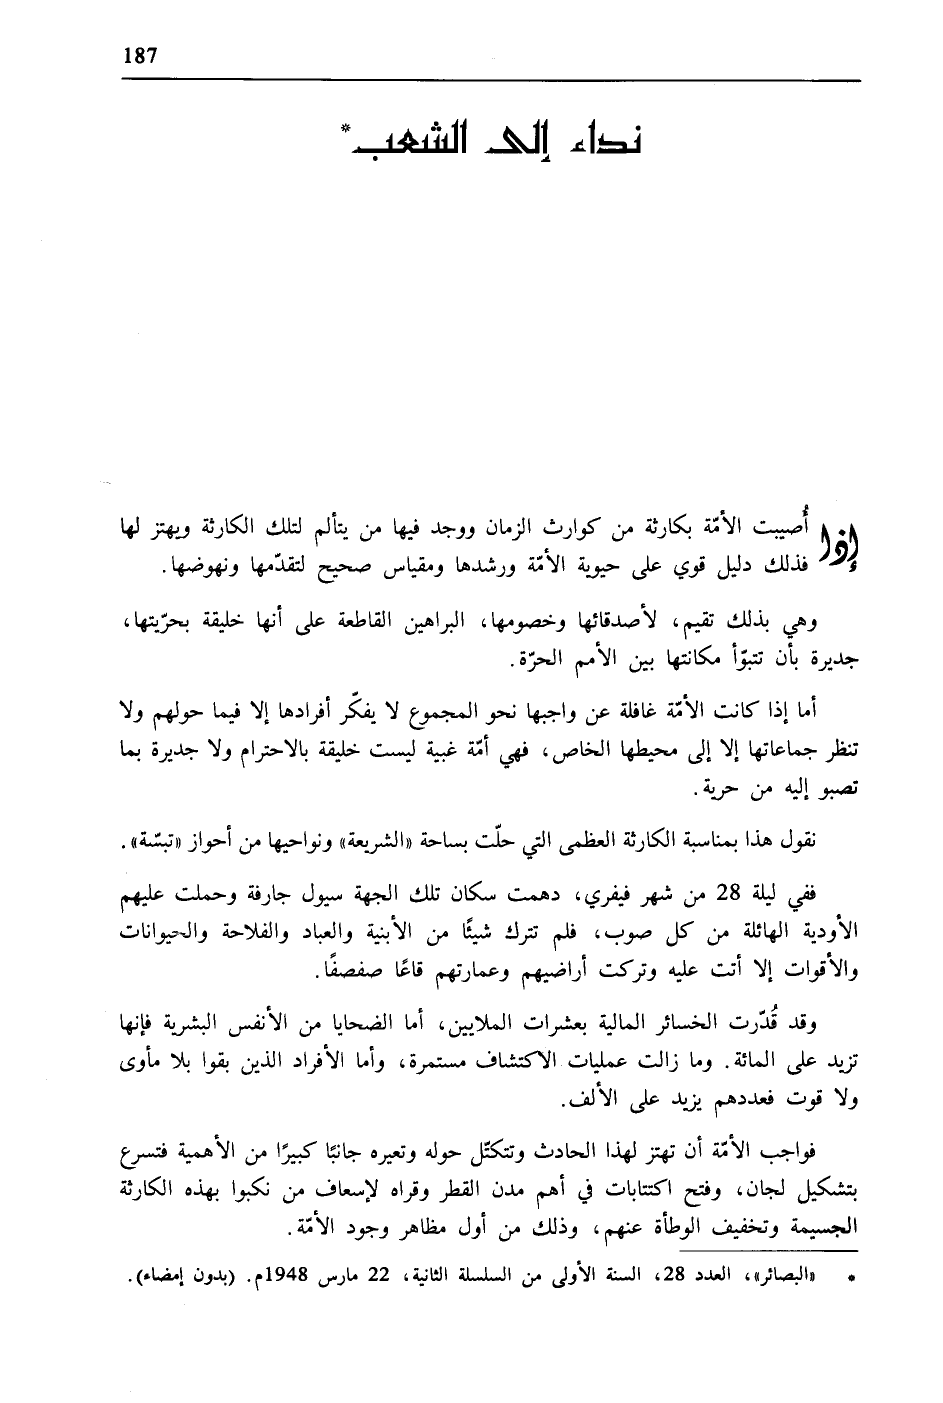 187
نداء إلى الشعب*
إذا أُصيبت الأمّة بكارثة من كوارث الزمان ووجد فيها من يتألم لتلك الكارثة ويهتز لها
فذلك دليل قوي على حيوية الأمّة ورشدها ومقياس صحيح لتقدّمها ونهوضها.
وهي بذلك تقيم، لأصدقائها وخصومها، البراهين القاطعة على أنها خليقة بحرّيتها،
جديرة بأن تتبوّأ مكانتها بين الأمم الحرّة.
أما إذا كانت الأمّة غافلة عن واجبها نحو المجموع لا يفكّر أفرادها إلا فيما حولهم ولا
تنظر جماعاتها إلا إلى محيطها الخاص، فهي أمّة غبية ليست خليقة بالاحترام ولا جديرة بما
تصبو إليه من حرية.
نقول هذا بمناسبة الكارثة العظمى التي حلّت بساحة «الشريعة» ونواحيها من أحواز «تبسّة».
ففي ليلة 28 من شهر فيفري، دهمت سكان تلك الجهة سيول جارفة وحملت عليهم
الأودية الهائلة من كل صوب، فلم تترك شيئًا من الأبنية والعباد والفلاحة والحيوانات
والأقوات إلا أتت عليه وتركت أراضيهم وعمارتهم قاعًا صفصفًا.
وقد قُدّرت الخسائر المالية بعشرات الملايين، أما الضحايا من الأنفس البشرية فإنها
تزيد على المائة. وما زالت عمليات الاكتشاف مستمرة، وأما الأفراد الذين بقوا بلا مأوى
ولا قوت فعددهم يزيد على الألف.
فواجب الأمّة أن تهتز لهذا الحادث وتتكتّل حوله وتعيره جانبًا كبيرًا من الأهمية فتسرع
بتشكيل لجان، وفتح اكتتابات في أهم مدن القطر وقراه لإسعاف من نكبوا بهذه الكارثة
الجسيمة وتخفيف الوطأة عنهم، وذلك من أول مظاهر وجود الأمّة.
* «البصائر»، العدد 28، السنة الأولى من السلسلة الثانية، 22 مارس 1948م. (بدون إمضاء).